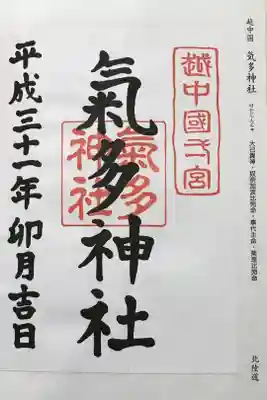 越中国 気多神社
けたじんじゃ
大己貴神・奴奈加波比売命・事代主命・菊理比売命
北陸道
越中國一宮
氣多神社
氣多
神社
平成三十一年 卯月吉日